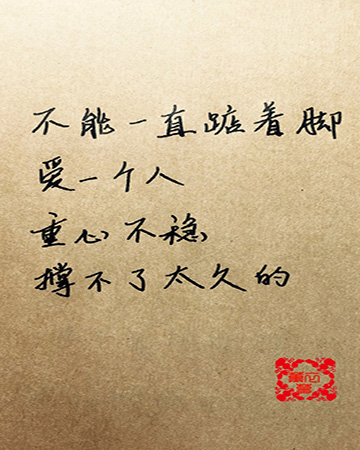 不能一直踮着脚
爱一个人
重心不稳
撑不了太久的